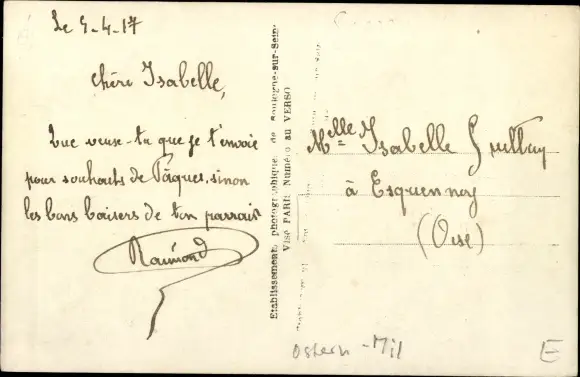 Le 5-4-17
Chère Isabelle,
Que veux-tu que je t'envoie
pour souhaits de Pâques, sinon
les bons baisers de ton parrain
Raimond
Etablissements photographiques de Boulogne-sur-Seine
Visé PARIS Numéro au VERSO
Melle Isabelle
à Esquennoy
(Oise)
Ostern-Mil
E